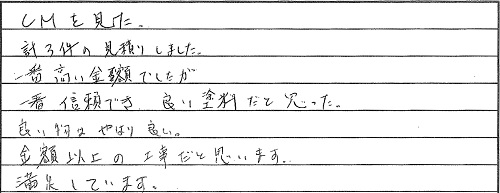 CMを見た。
計3件の見積りしました。
一番高い金額でしたが
一番信頼でき 良い塗料だと思った。
良い物は やはり良い。
金額以上の工事だと思います。
満足しています。